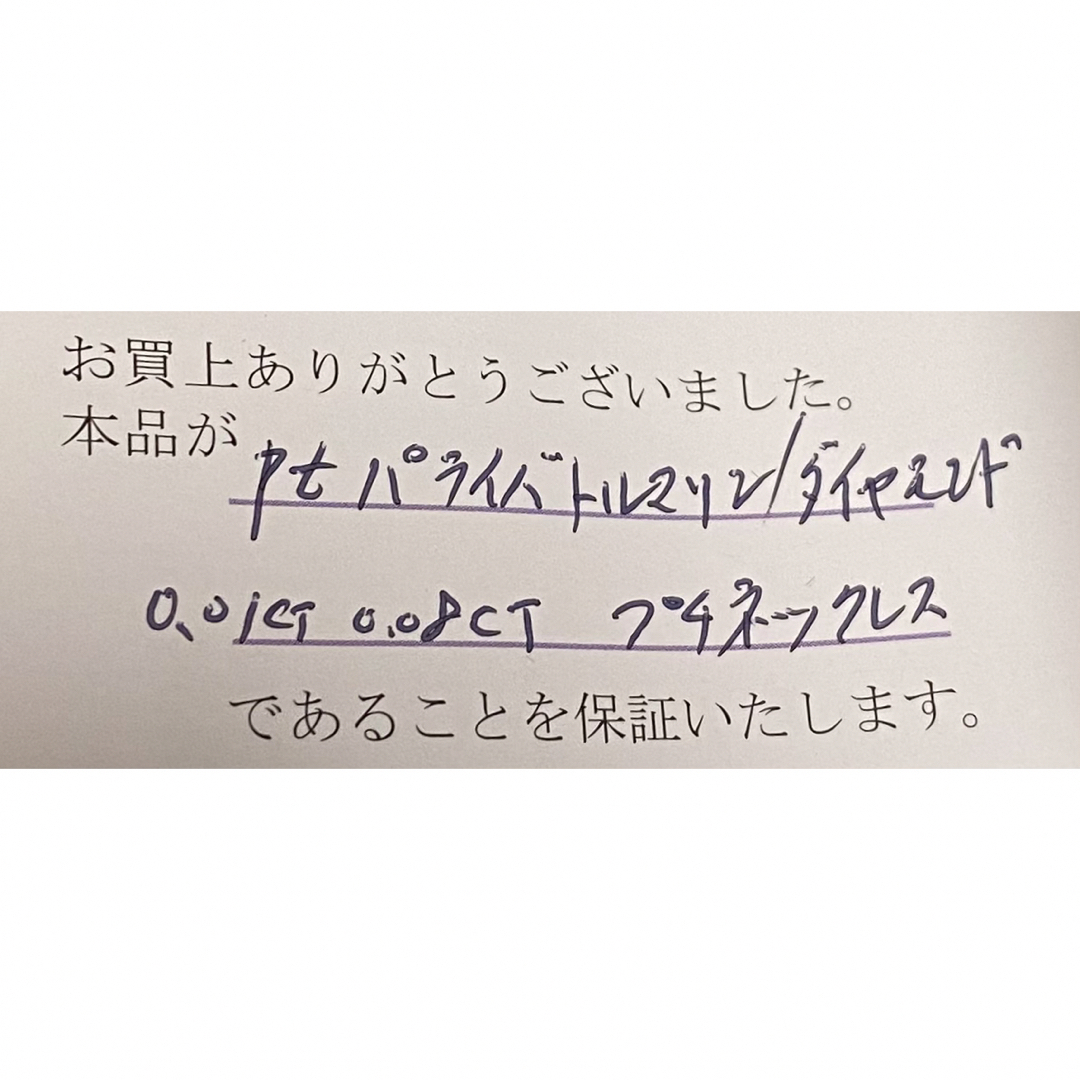 お買上ありがとうございました。
本品が
Pt パライバトルマリン/ダイヤモンド
0.01CT 0.08CT プチネックレス
であることを保証いたします。